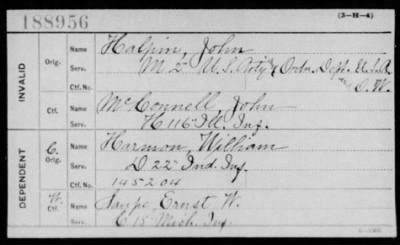 188956 (3-H-4)
INVALID
Orig. Name Halpin, John
Serv. M 2" U.S. Arty & Ordn. Dept. U.S.A.
Ctf.No. O. W.
Ctf. Name McConnell, John
Serv. H 116" Ill. Inf.
DEPENDENT
C. Orig. Name Harmon, William
Serv. D 22" Ind. Inf.
Ctf. No. 145204
W. Ctf. Name Saupe, Ernst W.
Serv. C 15" Mich. Inf.